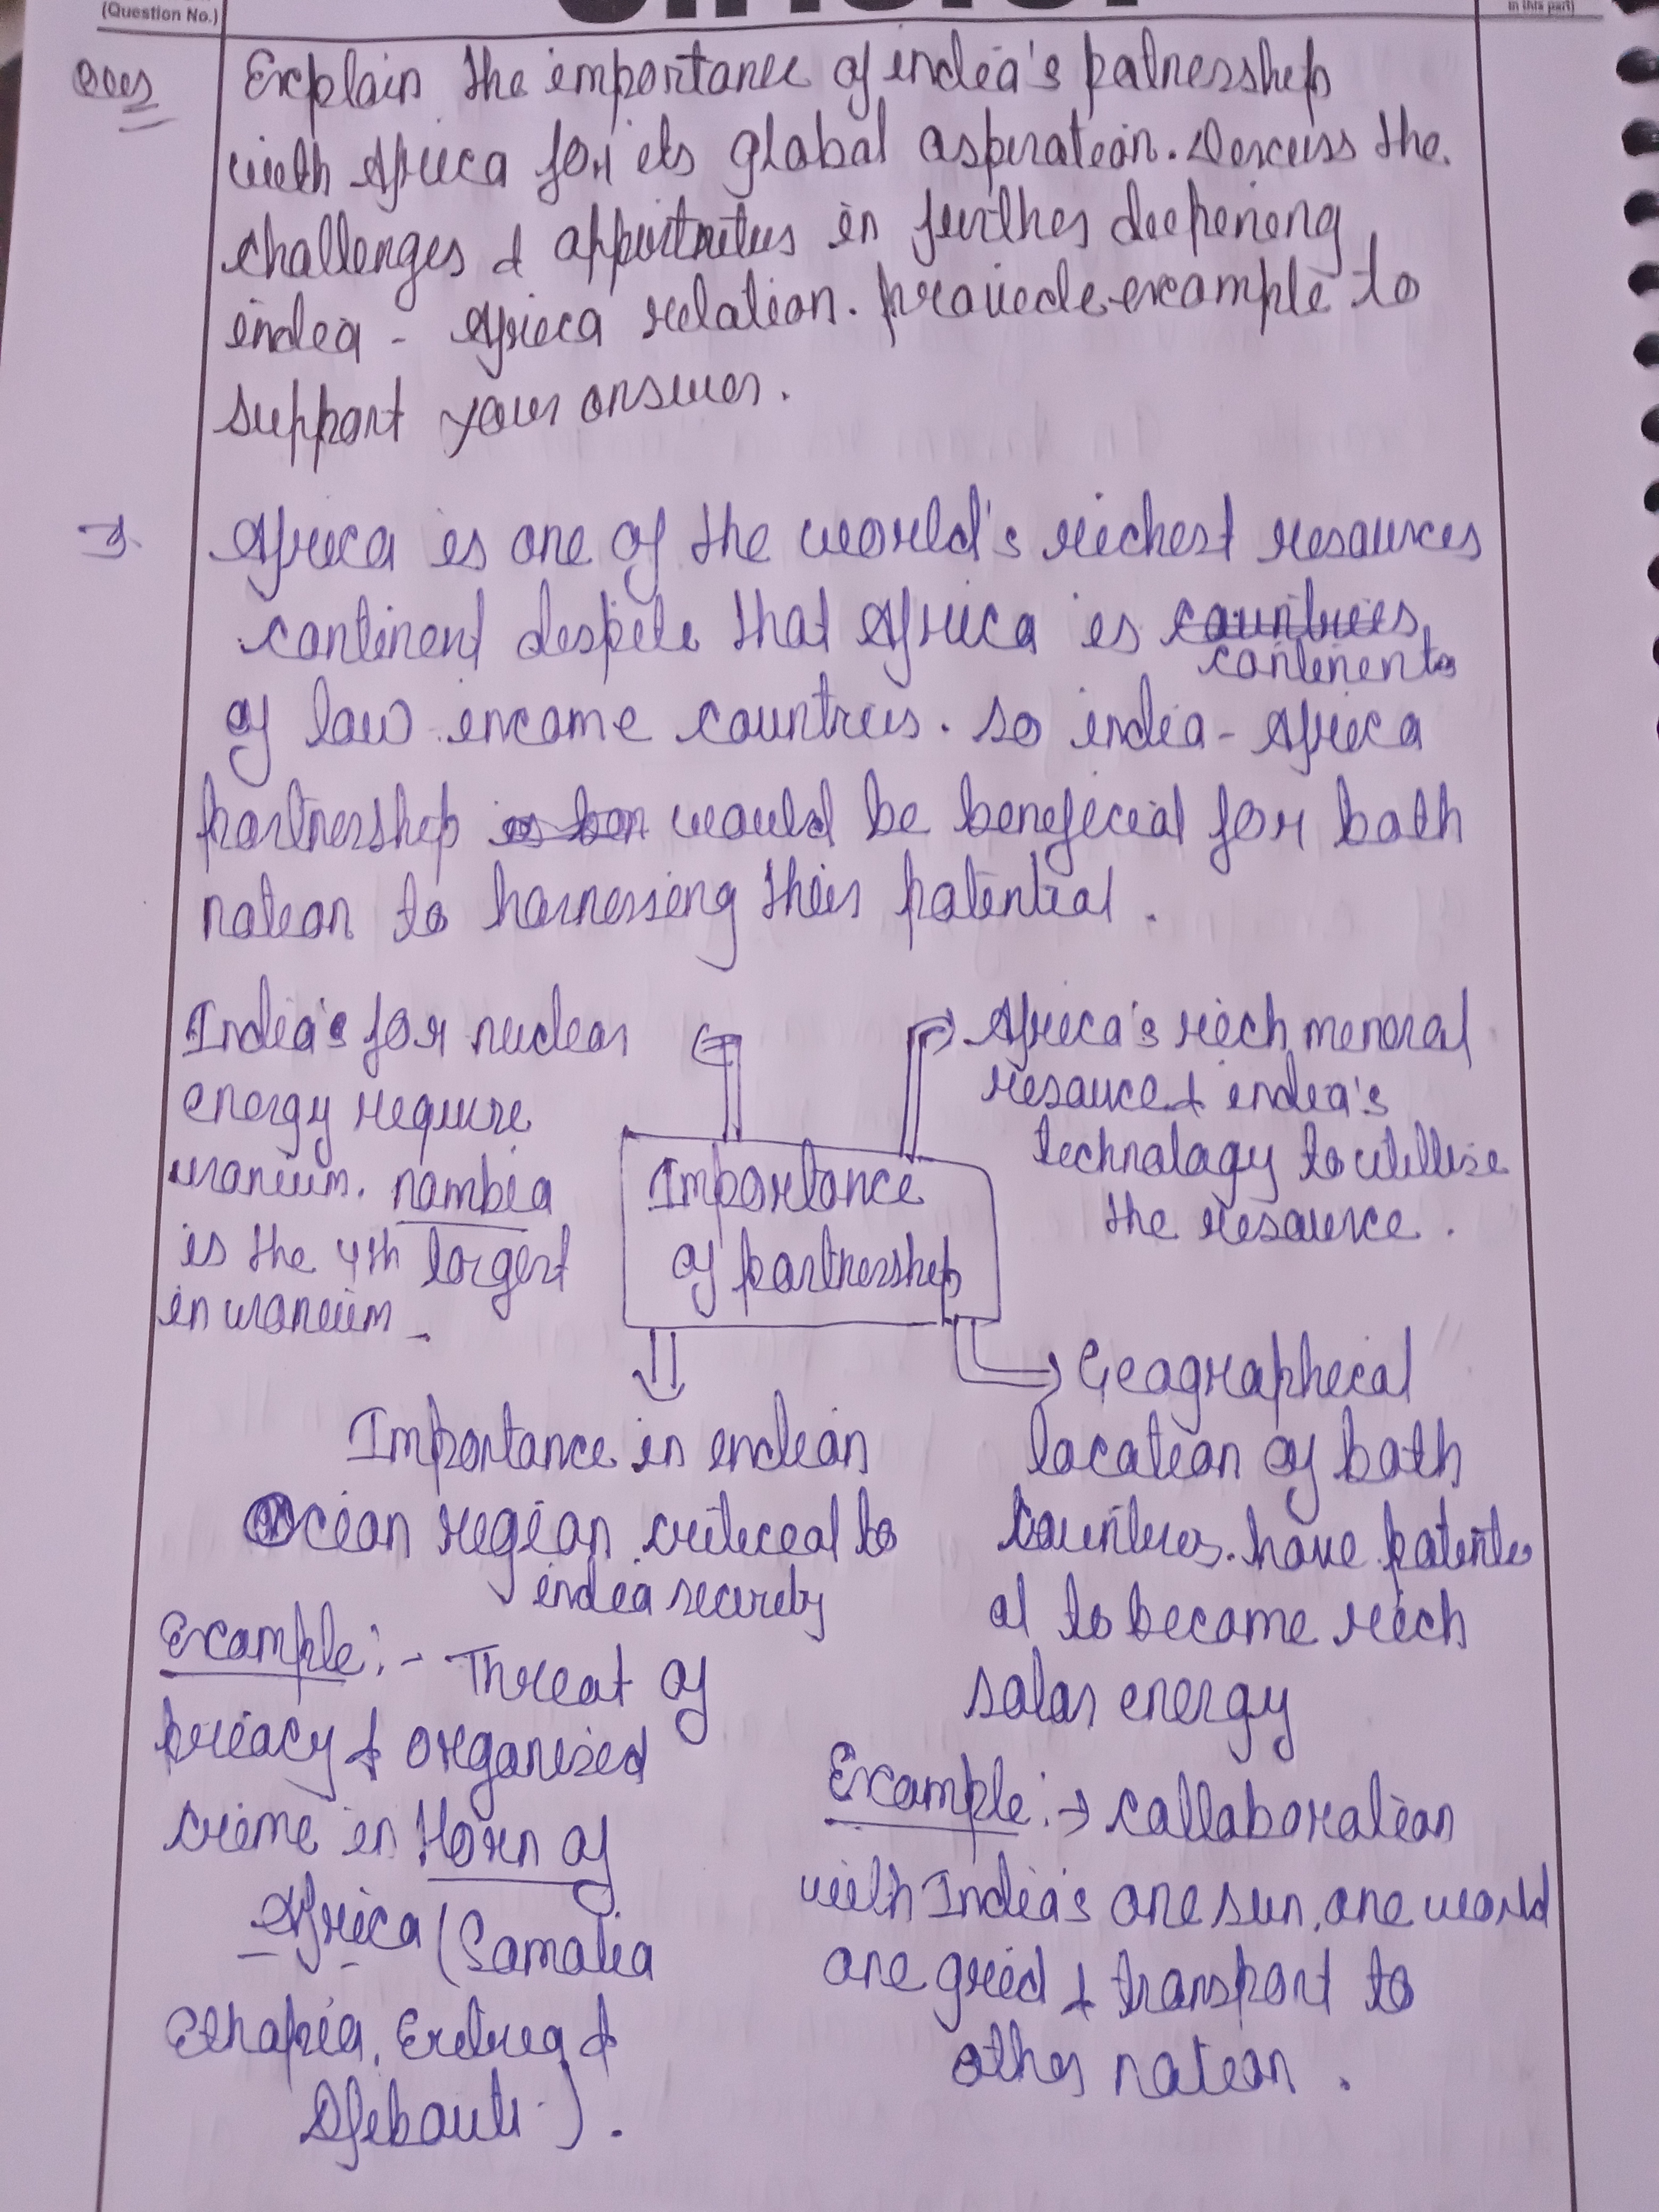 (Question No.)
in this part)
Ques
Explain the importance of india's patnership
with Africa for its global aspiration. Discuss the
challenges & apportnities in further deepening
india - Africa relation. provide example to
support your answer.
→ Africa is one of the world's richest resources
continent despite that Africa is countries
continents
of low income countries. So india - Africa
partnership is ben would be beneficial for both
nation to harnessing their potential.
India's for nuclear
energy require
uranium. nambia
is the 4th largest
in uranium
Africa's rich meneral
resource & india's
technology to utillise
the resource.
Importance
of partnership
Importance in indian
Ocean region critical to
india security
Example :- Threat of
piracy & organised
crime in Horn of
Africa (Somalia
Ethopia, Eritrea &
Djibouti).
Geographical
location of both
Countries have potenti
al to become rich
solar energy
Example :→ collaboration
with India's one sun, one world
one grid & transport to
other nation.